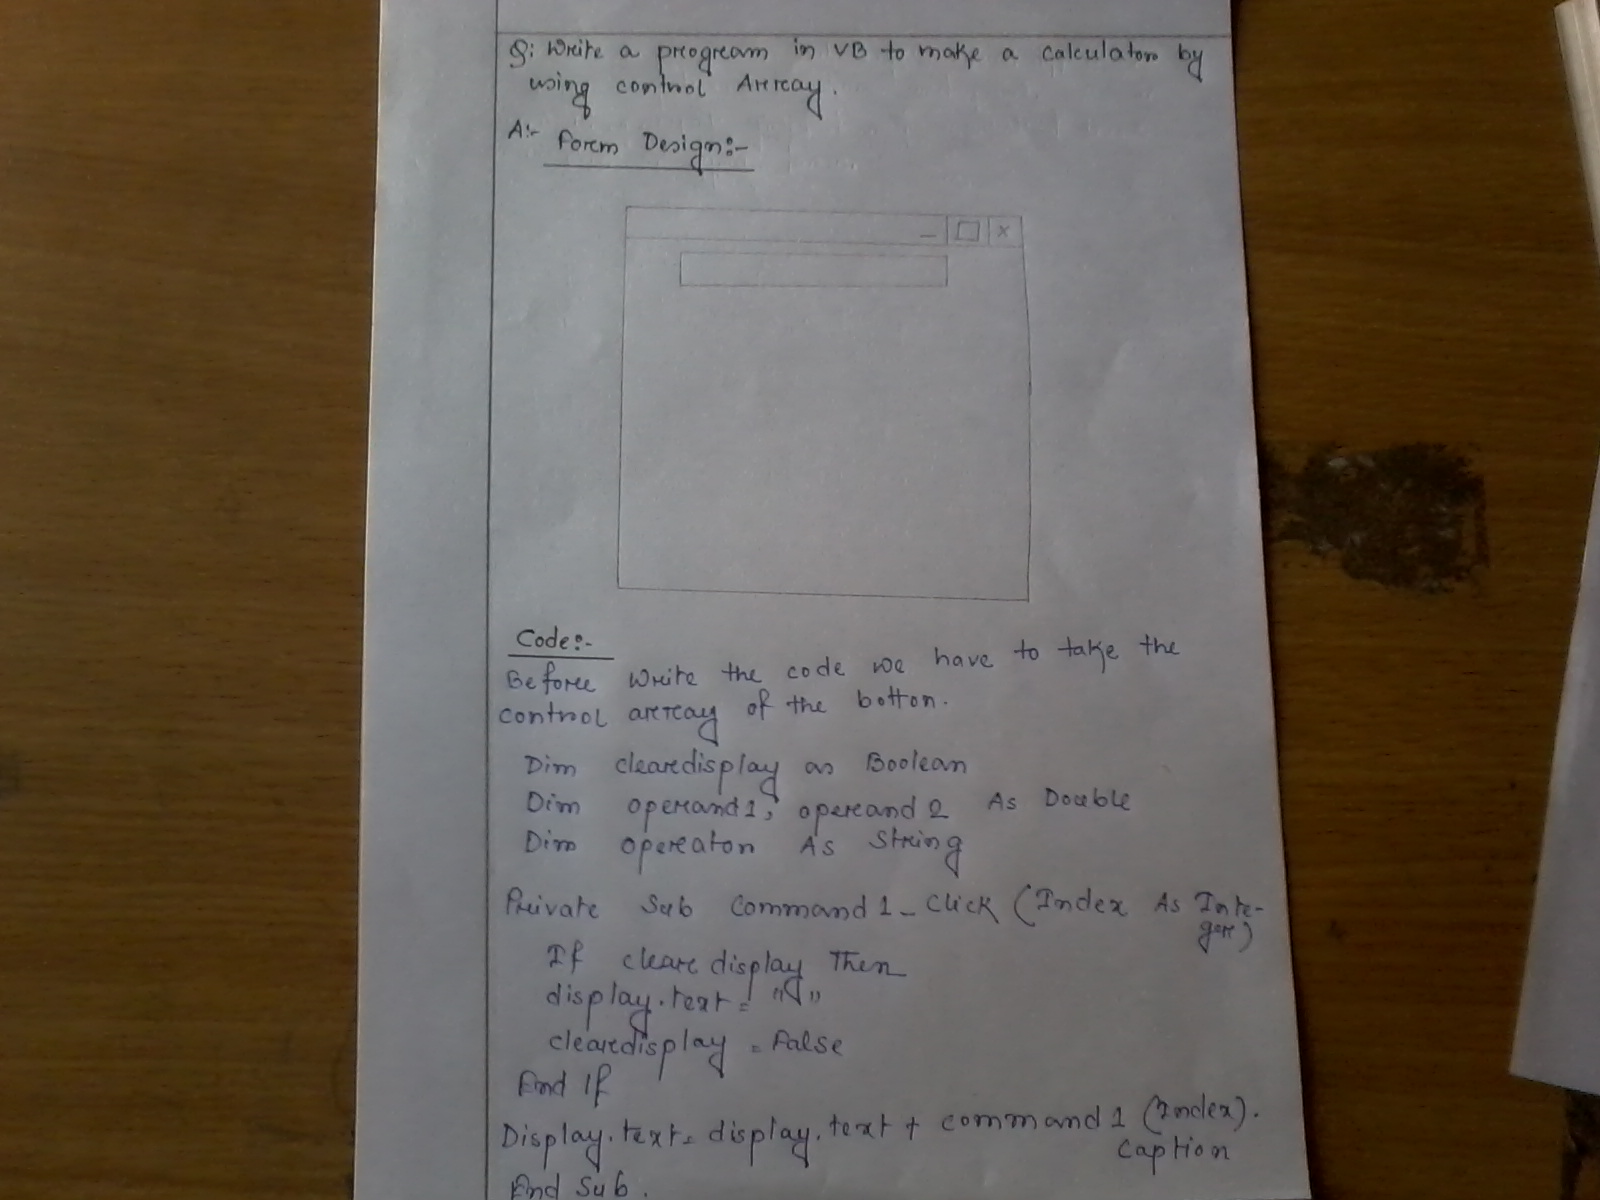 Q: Write a program in VB to make a calculator by
using control Array.
A:- Form Design:-
– □ x
Code:-
Before Write the code we have to take the
control array of the botton.
Dim cleardisplay as Boolean
Dim operand1, operand2 As Double
Dim operator As String
Private Sub Command1_Click (Index As Inte-
ger)
If cleardisplay Then
display.text = ""
cleardisplay = False
End If
Display.text = display.text + command1 (Index).
caption
End Sub.